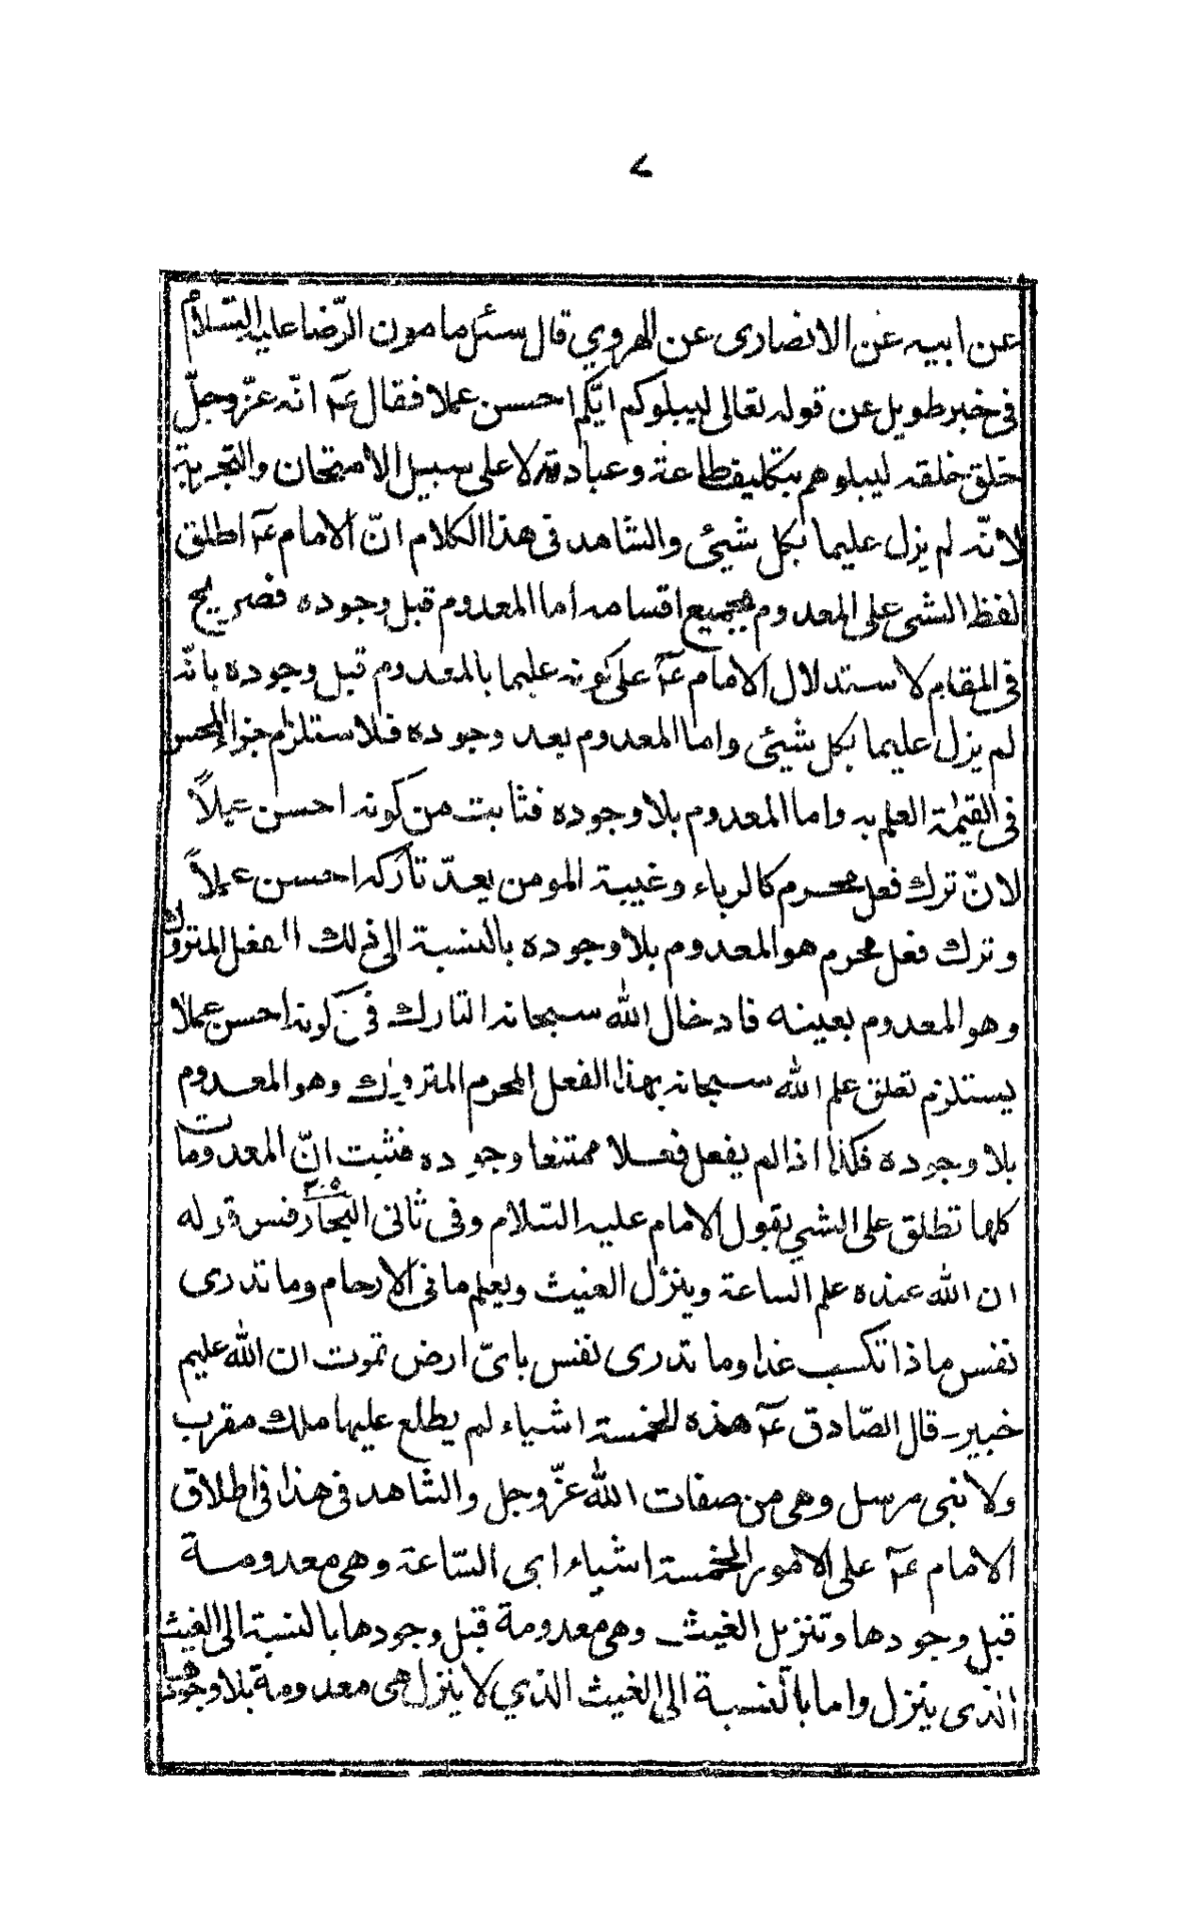 ٧
عن ابيه عن الانصارى عن الهروي قال سئل مامون الرّضا عليه السّلام
فى خبر طويل عن قوله تعالى ليبلوكم ايّكم احسن عملا فقال عم انّه عزّ وجلّ
خلق خلقه ليبلوهم بتكليف طاعته وعبادته لا على سبيل الامتحان والتجربة
لانّه لم يزل عليما بكل شيئى والشاهد فى هذا الكلام انّ الامام عم اطلق
لفظ الشى على المعدوم بجميع اقسامه أما المعدوم قبل وجوده فصريح
فى المقام لاستدلال الامام عم على كونه عليما بالمعدوم قبل وجوده بانّه
لم يزل عليما بكل شيئى واما المعدوم بعد وجوده فلاستلزام جزاء المحسن
فى القيمة العلم به واما المعدوم بلا وجوده فثابت من كونه احسن عملاً
لانّ ترك فعل محرم كالرياء وغيبة المومن يعدّ تاركه احسن عملاً
وترك فعل محرم هو المعدوم بلا وجوده بالنسبة الى ذلك الفعل المتروك
وهو المعدوم بعينه فادخال الله سبحانه التارك فى كونه احسن عملا
يستلزم تعلق علم الله سبحانه بهذا الفعل المحرم المتروك وهو المعدوم
بلا وجوده فكذا اذا لم يفعل فعلا ممتنعا وجوده فثبت انّ المعدومات
كلها تطلق على الشي بقول الامام عليه السّلام وفى ثانى البحار ٣٠٥ فنس قوله
ان الله عنده علم الساعة وينزّل الغيث ويعلم ما فى الارحام وما تدرى
نفس ماذا تكسب غدا وما تدرى نفس باىّ ارض تموت ان الله عليم
خبير - قال الصّادق عم هذه الخمسة اشياء لم يطلع عليها ملك مقرب
ولا نبى مرسل وهى من صفات الله عزّ وجل والشاهد فى هذا فى اطلاق
الامام عم على الامور الخمسة اشياء اى السّاعة وهى معدومة
قبل وجودها وتنزيل الغيث وهى معدومة قبل وجودها بالنسبة الى الغيث
الذى ينزل واما بالنسبة الى الغيث الذي لا ينزل هى معدومة بلا وجودها